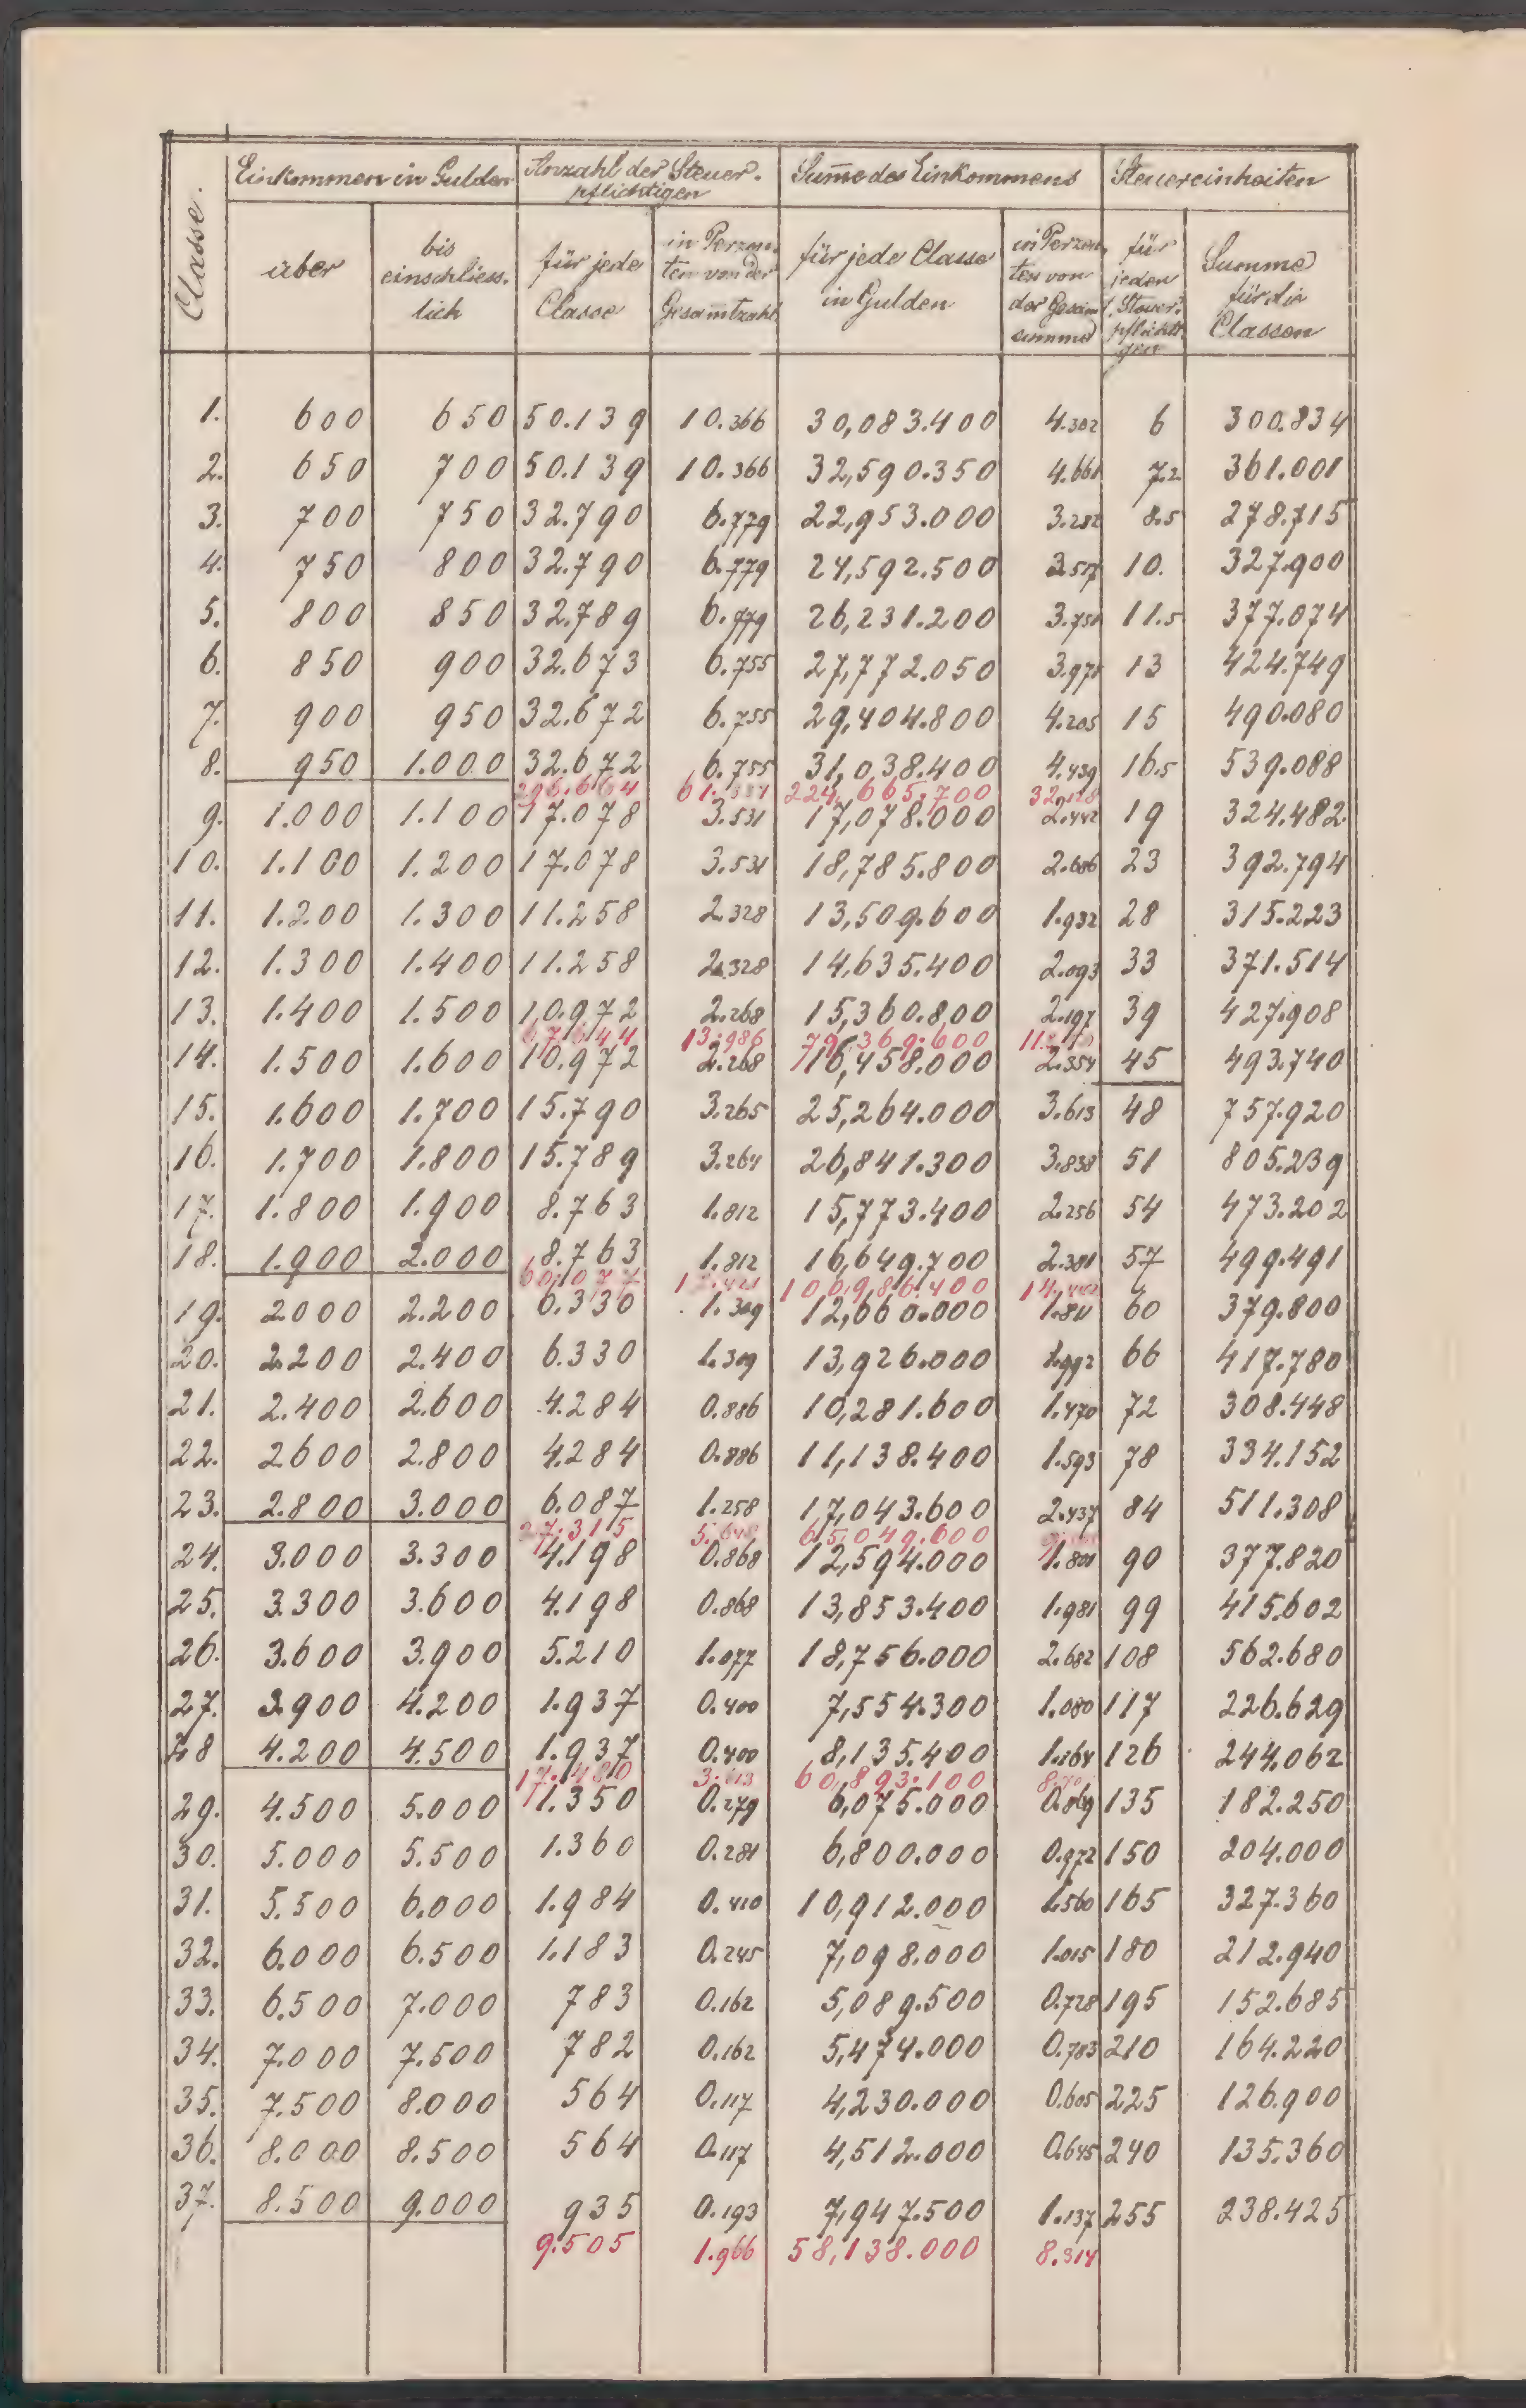 Classe.
Einkommen in Gulden
Anzahl der Steuer-
pflichtigen
Summe des Einkommens
Steuereinheiten
über
bis
einschliess-
lich
für jede
Classe
in Perzen-
ten von der
Gesamtzahl
für jede Classe
in Gulden
in Perzen-
ten von
der Gesam
summe
für
jeden
Steuer-
pflichti-
gen
Summe
für die
Classen
1. 600 650 50.139 10.366 30,083.400 4.302 6 300.834
2. 650 700 50.139 10.366 32,590.350 4.661 7.2 361.001
3. 700 750 32.790 6.779 22,953.000 3.282 8.5 278.715
4. 750 800 32.790 6.779 24,592.500 3.517 10. 327.900
5. 800 850 32.789 6.779 26,231.200 3.751 11.5 377.074
6. 850 900 32.673 6.755 27,772.050 3.971 13 424.749
7. 900 950 32.672 6.755 29,404.800 4.205 15 490.080
8. 950 1.000 32.672 6.755 31,038.400 4.439 16.5 539.088
296.664 61.334 224,665.700 32.128
9. 1.000 1.100 17.078 3.531 17,078.000 2.442 19 324.482
10. 1.100 1.200 17.078 3.531 18,785.800 2.686 23 392.794
11. 1.200 1.300 11.258 2.328 13,509.600 1.932 28 315.223
12. 1.300 1.400 11.258 2.328 14,635.400 2.093 33 371.514
13. 1.400 1.500 10.972 2.268 15,360.800 2.197 39 427.908
67.644 13.986 79,369.600
14. 1.500 1.600 10.972 2.268 16,458.000 2.354 45 493.740
15. 1.600 1.700 15.790 3.265 25,264.000 3.613 48 757.920
16. 1.700 1.800 15.789 3.264 26,841.300 3.838 51 805.239
17. 1.800 1.900 8.763 1.812 15,773.400 2.256 54 473.202
18. 1.900 2.000 8.763 1.812 16,649.700 2.381 57 499.491
60.077 12.421 100,986.400 14.442
19. 2000 2.200 6.330 1.309 12,660.000 1.811 60 379.800
20. 2.200 2.400 6.330 1.309 13,926.000 1.992 66 417.780
21. 2.400 2.600 4.284 0.886 10,281.600 1.470 72 308.448
22. 2600 2.800 4.284 0.886 11,138.400 1.593 78 334.152
23. 2.800 3.000 6.087 1.258 17,043.600 2.437 84 511.308
27.315 5.648 65,049.600
24. 3.000 3.300 4.198 0.868 12,594.000 1.801 90 377.820
25. 3.300 3.600 4.198 0.868 13,853.400 1.981 99 415.602
26. 3.600 3.900 5.210 1.077 18,756.000 2.682 108 562.680
27. 3.900 4.200 1.937 0.400 7,554.300 1.080 117 226.629
28 4.200 4.500 1.937 0.400 8,135.400 1.164 126 244.062
17.480 3.613 60,893.100
29. 4.500 5.000 1.350 0.279 6,075.000 0.869 135 182.250
30. 5.000 5.500 1.360 0.281 6,800.000 0.972 150 204.000
31. 5.500 6.000 1.984 0.410 10,912.000 1.560 165 327.360
32. 6.000 6.500 1.183 0.245 7,098.000 1.015 180 212.940
33. 6.500 7.000 783 0.162 5,089.500 0.728 195 152.685
34. 7.000 7.500 782 0.162 5,474.000 0.783 210 164.220
35. 7.500 8.000 564 0.117 4,230.000 0.605 225 126.900
36. 8.000 8.500 564 0.117 4,512.000 0.645 240 135.360
37. 8.500 9.000 935 0.193 7,947.500 1.137 255 238.425
9.505 1.966 58,138.000 8.314